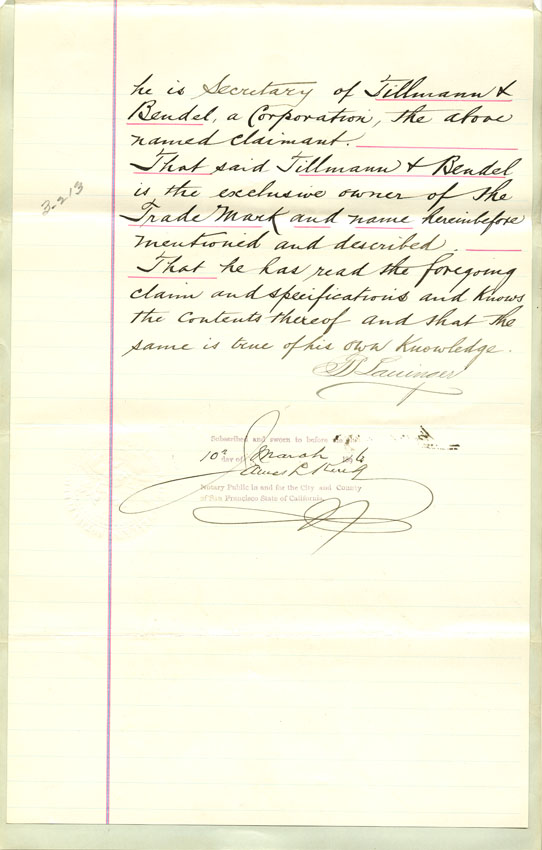 he is Secretary of Tillmann &
Bendel, a Corporation, the above
named claimant.
That said Tillmann & Bendel
is the exclusive owner of the
3.213
Trade Mark and name hereinbefore
mentioned and described.
That he has read the foregoing
claim and specifications and knows
the contents thereof and that the
same is true of his own knowledge.
Lauinger
Subscribed and sworn to before
10th day of March
James L. King
Notary Public in and for the City and County
of San Francisco State of California